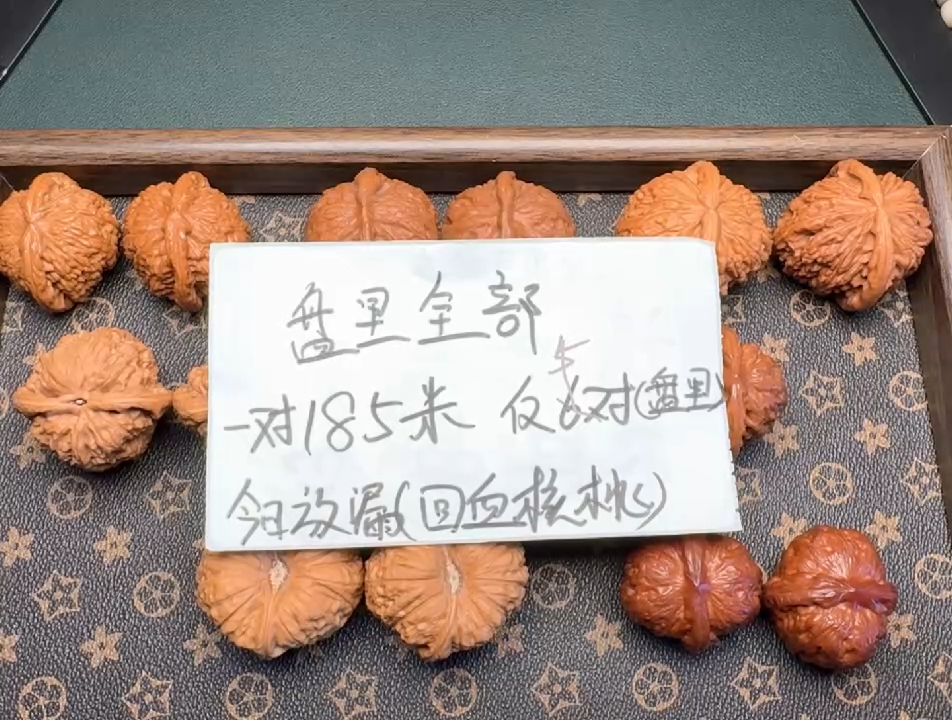 盘里全部
一对185米 仅6对(盘里)
今日放漏(回血核桃)